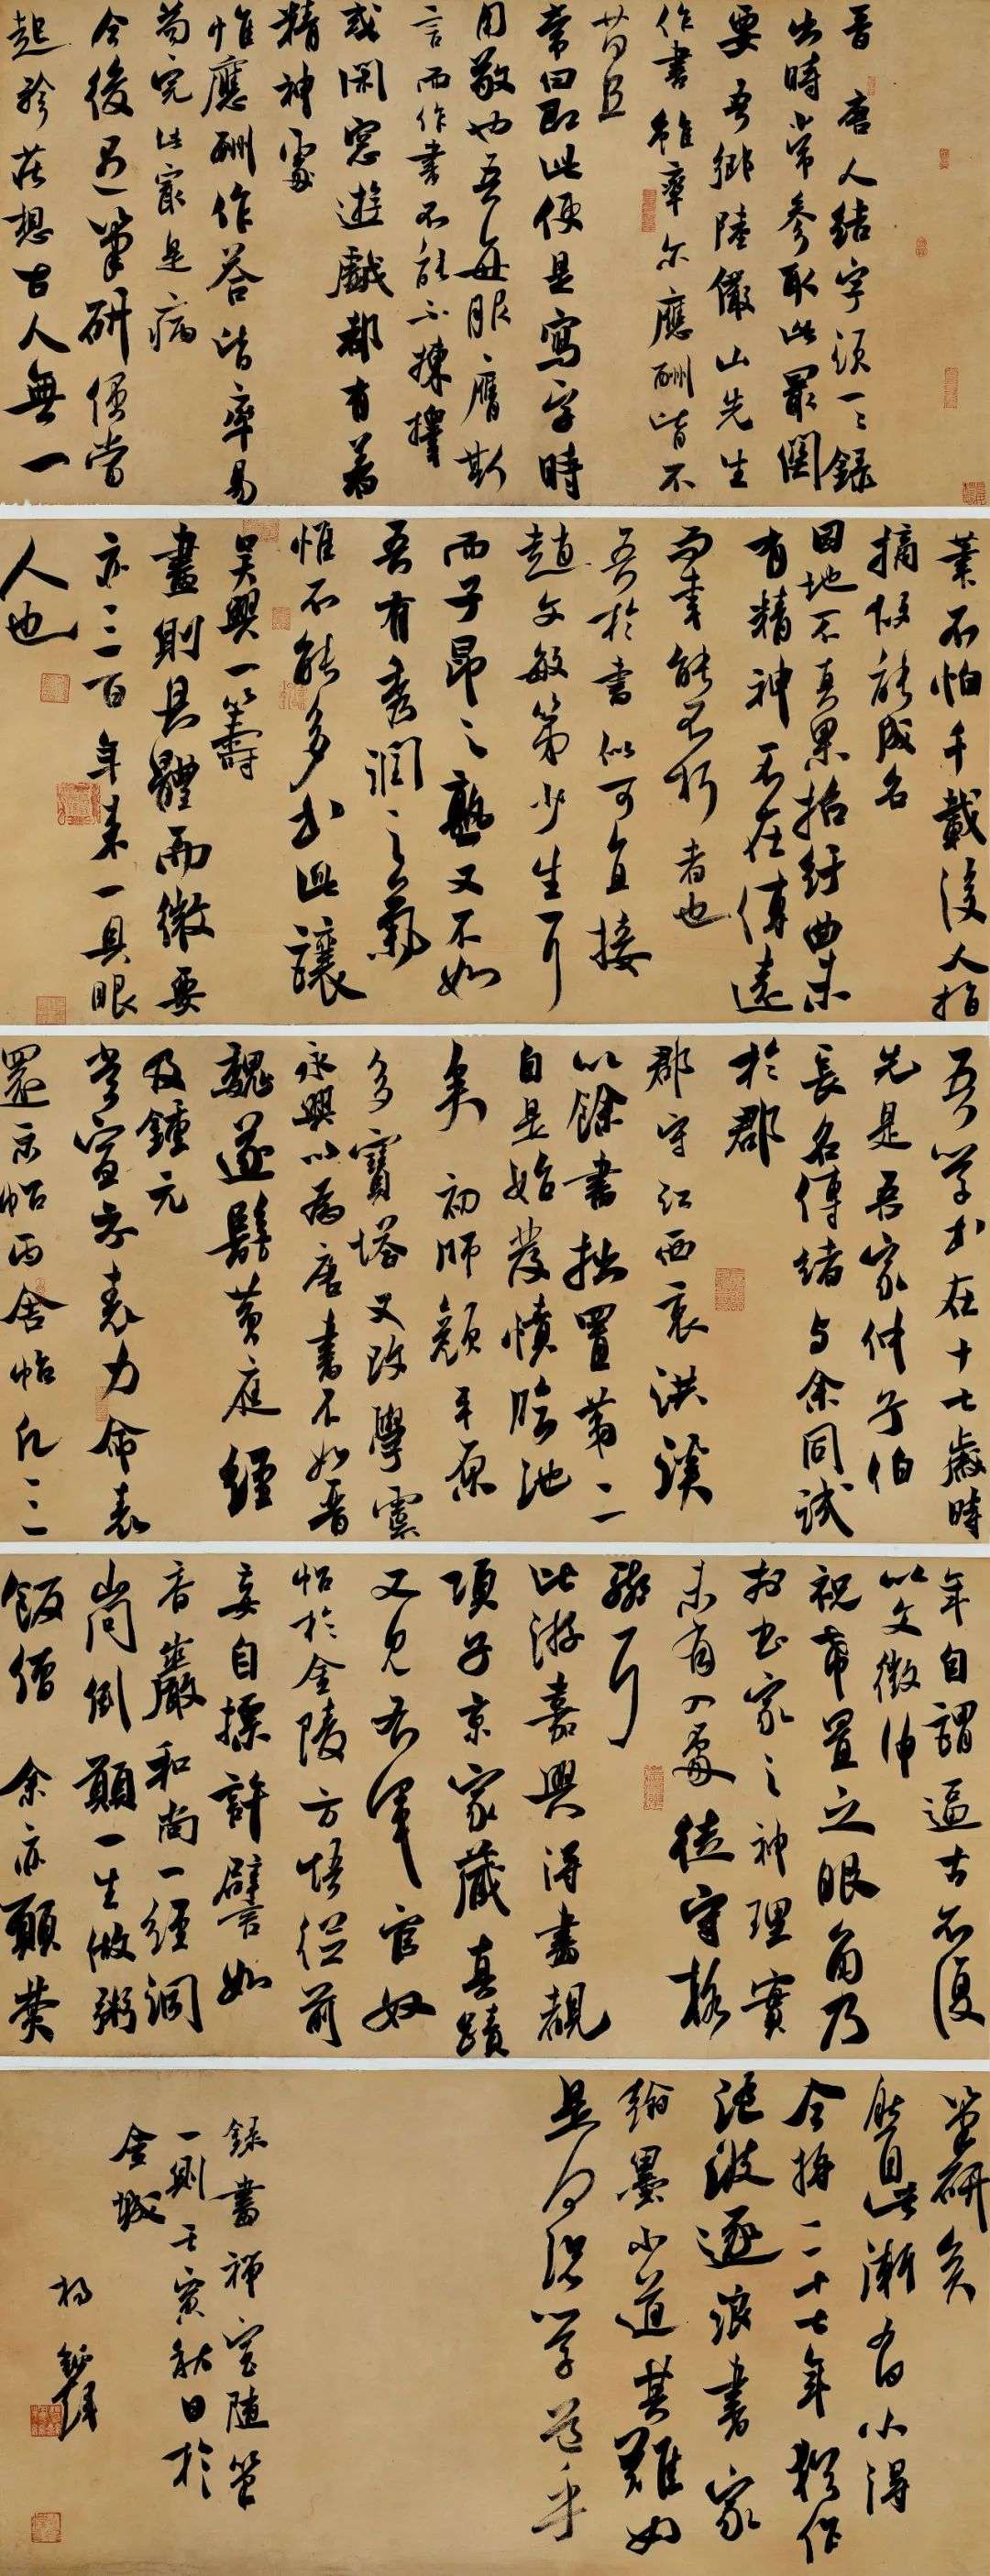 晋唐人結字須一一録
出時常參取此最關
要吾鄉陸儼山先生
作書雖率尔應酬皆不
苟且
常曰即此便是寫字時
用敬也吾每服膺斯
言而作書不能不揀擇
或閑窓遊戲都有着
精神處
惟應酬作荅皆率易
苟完此最是病
今後遇筆研便當
起矜莊想古人無一
筆不怕千載後人指
摘故能成名
因地不真果招紆曲未
有精神不在傳遠
而幸能不朽者也
吾於書似可直接
趙文敏第少生耳
而子昂之熟又不如
吾有秀潤之氣
惟不能多書此讓
吴興一籌
畫則具體而微要
亦三百年来一具眼
人也
吾學書在十七歲時
先是吾家仲子伯
長名傳緒与余同試
於郡
郡守江西衷洪溪
以餘書拙置第二
自是始發憤臨池
矣初師顔平原
多寶塔又改學虞
永興以為唐書不如晋
魏遂髣黄庭經
及鍾元
常宣示表力命表
還示帖丙舍帖凡三
年自謂逼古不復
以文徵仲
祝希置之眼角乃
於書家之神理實
未有入處徒守格
轍耳
比游嘉興得盡覩
項子京家藏真蹟
又見右軍官奴
帖於金陵方悟從前
妄自摽許譬如
香嚴和尚一經洞
山問倒願一生做粥
飯僧余亦願焚
筆研矣
然自此漸有小得
今将二十七年猶作
隨波逐浪書家
翰墨小道其難如
是何況學道乎
録書禅室隨筆
一則壬寅秋日於
金城